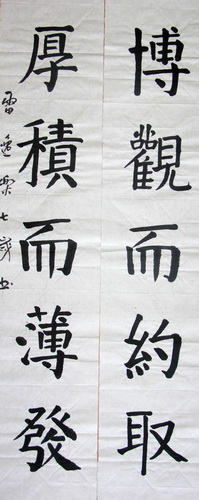 博觀而約取
厚積而薄發
七歲書